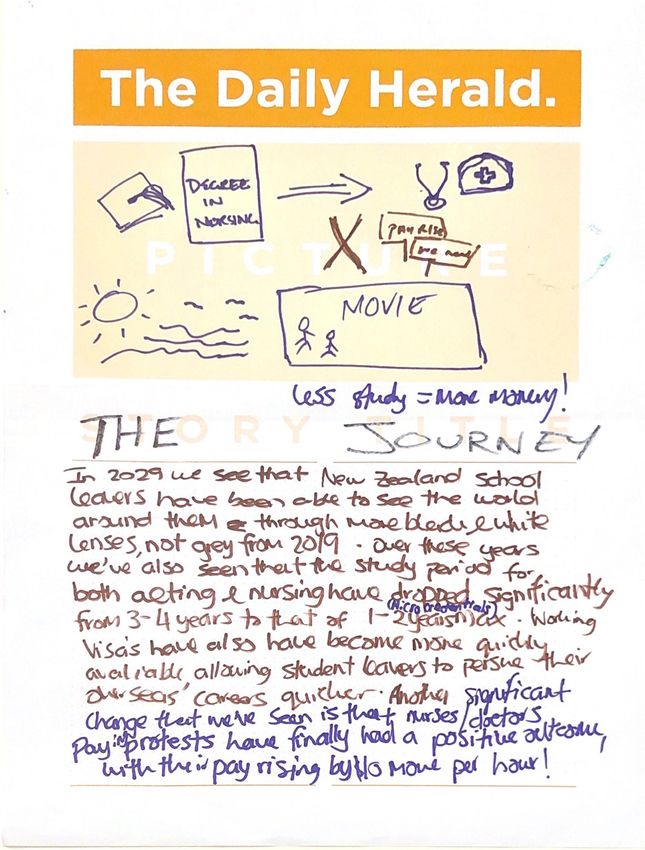 The Daily Herald.
DEGREE
IN
NURSING
PAY RISE
we need
PICTURE
MOVIE
less study = more money!
STORY TITLE
THE JOURNEY
In 2029 we see that New Zealand school
leavers have been able to see the world
around them through more black & white
lenses, not grey from 2019. Over these years
we've also seen that the study period for
both acting & nursing have dropped significantly
(Micro credentials)
from 3-4 years to that of 1-2 years max. Working
Visa's have also have become more quickly
available allowing student leavers to persue their
overseas' careers quicker. Another significant
change that we've seen is that nurses/doctors
paying protests have finally had a positive outcome,
with their pay rising by $10 more per hour!